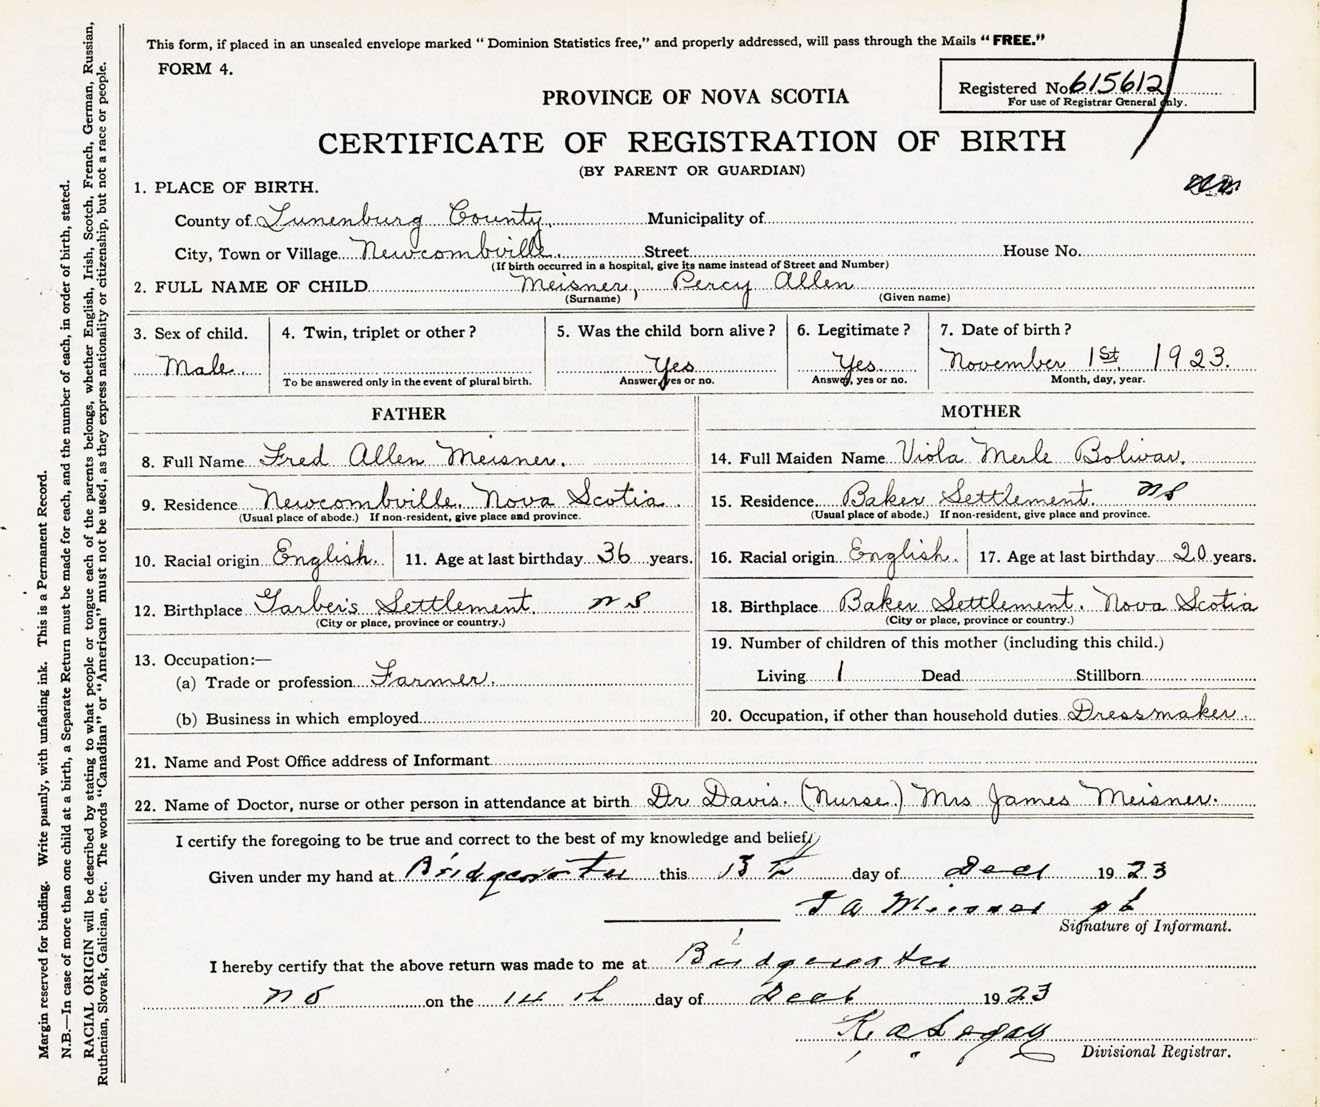 This form, if placed in an unsealed envelope marked "Dominion Statistics free," and properly addressed, will pass through the Mails "FREE."
FORM 4.
Registered No. 615612
For use of Registrar General only.
PROVINCE OF NOVA SCOTIA
CERTIFICATE OF REGISTRATION OF BIRTH
(BY PARENT OR GUARDIAN)
1. PLACE OF BIRTH.
County of Lunenburg County, Municipality of
City, Town or Village Newcombville. Street House No.
(If birth occurred in a hospital, give its name instead of Street and Number)
2. FULL NAME OF CHILD Meisner, Percy Allen
(Surname) (Given name)
3. Sex of child. 4. Twin, triplet or other? 5. Was the child born alive? 6. Legitimate? 7. Date of birth?
Male. Yes Yes November 1st. 1923.
To be answered only in the event of plural birth. Answer, yes or no. Answer, yes or no. Month, day, year.
FATHER MOTHER
8. Full Name Fred Allen Meisner. 14. Full Maiden Name Viola Merle Bolivar.
9. Residence Newcombville, Nova Scotia. 15. Residence Baker Settlement. NS
(Usual place of abode.) If non-resident, give place and province. (Usual place of abode.) If non-resident, give place and province.
10. Racial origin English. 11. Age at last birthday 36 years. 16. Racial origin English. 17. Age at last birthday 20 years.
12. Birthplace Garber's Settlement. NS 18. Birthplace Baker Settlement. Nova Scotia
(City or place, province or country.) (City or place, province or country.)
19. Number of children of this mother (including this child.)
13. Occupation:—
(a) Trade or profession Farmer. Living 1 Dead Stillborn
(b) Business in which employed 20. Occupation, if other than household duties Dressmaker.
21. Name and Post Office address of Informant
22. Name of Doctor, nurse or other person in attendance at birth Dr Davis. (Nurse.) Mrs James Meisner.
I certify the foregoing to be true and correct to the best of my knowledge and belief,
Given under my hand at Bridgewater this 13th day of Dec 1923
F A Meisner
Signature of Informant.
I hereby certify that the above return was made to me at Bridgewater
NS on the 14th day of Dec 1923
Divisional Registrar.
Margin reserved for binding. Write plainly, with unfading ink. This is a Permanent Record.
N.B.—In case of more than one child at a birth, a Separate Return must be made for each, and the number of each, in order of birth, stated.
RACIAL ORIGIN will be described by stating to what people or tongue each of the parents belongs, whether English, Irish, Scotch, French, German, Russian,
Ruthenian, Slovak, Galician, etc. The words "Canadian" or "American" must not be used, as they express nationality or citizenship, but not a race or people.